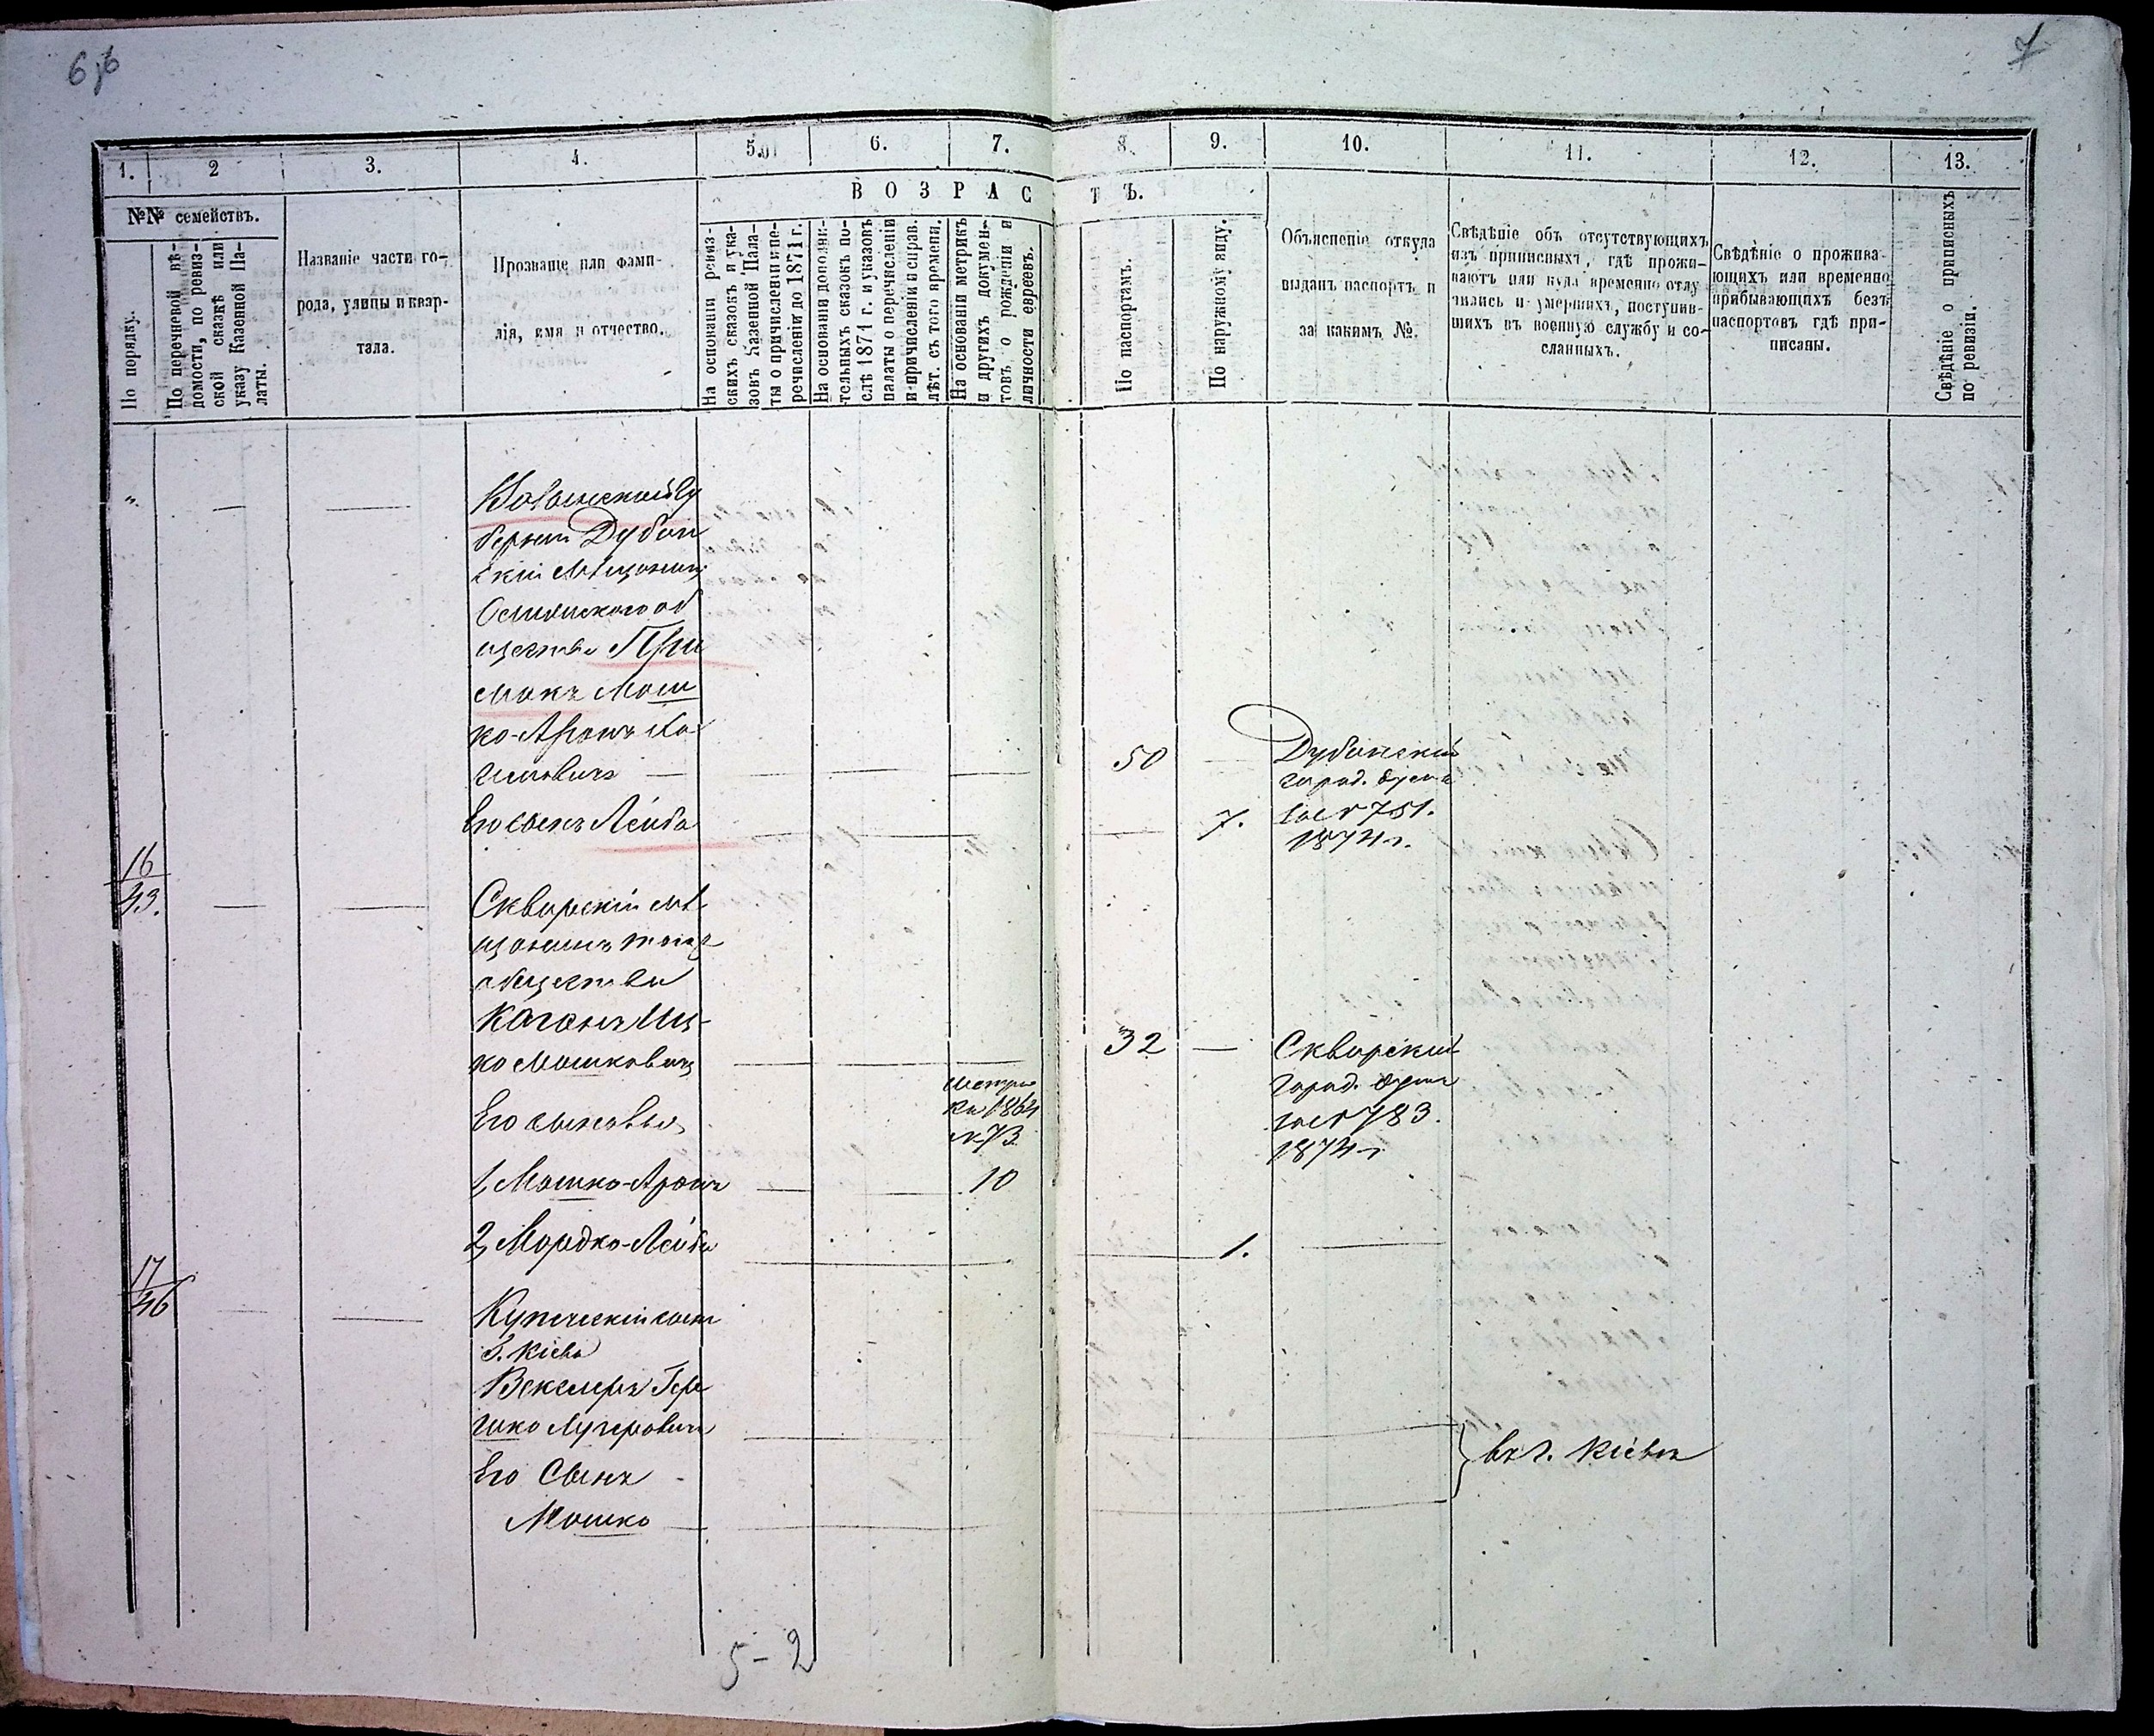 6,6
7
1.
2
3.
4.
5.
6.
7.
8.
9.
10.
11.
12.
13.
№№ семействъ.
По порядку.
По перечневой вѣ-
домости, по ревиз-
ской сказкѣ или
указу Казенной Па-
латы.
Названіе части го-
рода, улицы и квар-
тала.
Прозваще или фами-
лія, имя и отчество.
ВОЗРАСТЪ.
На основаніи ревиз-
скихъ сказокъ и ука-
зовъ Казенной Пала-
ты о причисленіи и пе-
речисленіи до 1871 г.
На основаніи дополни-
тельныхъ сказокъ по-
слѣ 1871 г. и указовъ
палаты о перечисленіи
и причисленіи и справ.
лѣт. съ того времени.
На основаніи метрикъ
и другихъ докумен-
товъ о рожденіи и
личности евреевъ.
По паспортамъ.
По наружному виду.
Объясненіе откуда
выданъ паспортъ и
за какимъ №.
Свѣдѣніе объ отсутствующихъ
изъ приписныхъ, гдѣ прожи-
ваютъ или куда временно отлу
чились и умершихъ, поступив-
шихъ въ военную службу и со-
сланныхъ.
Свѣдѣніе о прожива-
ющихъ или временно
прибывающихъ безъ
паспортовъ гдѣ при-
писаны.
Свѣдѣніе о приписныхъ
по ревизіи.
"
— —
Волынской Гу
берніи Дубен
скій Мѣщанинъ
общества При
макъ Мош
ко-Аронъ Ха
имовичъ —
50 —
Дубенскій
город. дума
Его сынъ Лейба
7.
за № 751.
1874 г.
16
43.
— —
Сквирскій мѣ
щанинъ того
общества
Каганъ Иц-
ко Мошковичъ
32 —
Сквирская
город. дума
за № 783.
1874 г.
Его сыновья
метри
ка 1864
№ 73
1, Мошко-Аронъ — 10
2, Мордко-Лейба
1. —
17
46
— —
Купеческій сынъ
г. Кіева
Векслеръ Гер
шко Лузеровичъ
Его Сынъ
Мошко —
} въ г. Кіевѣ
5 - 2